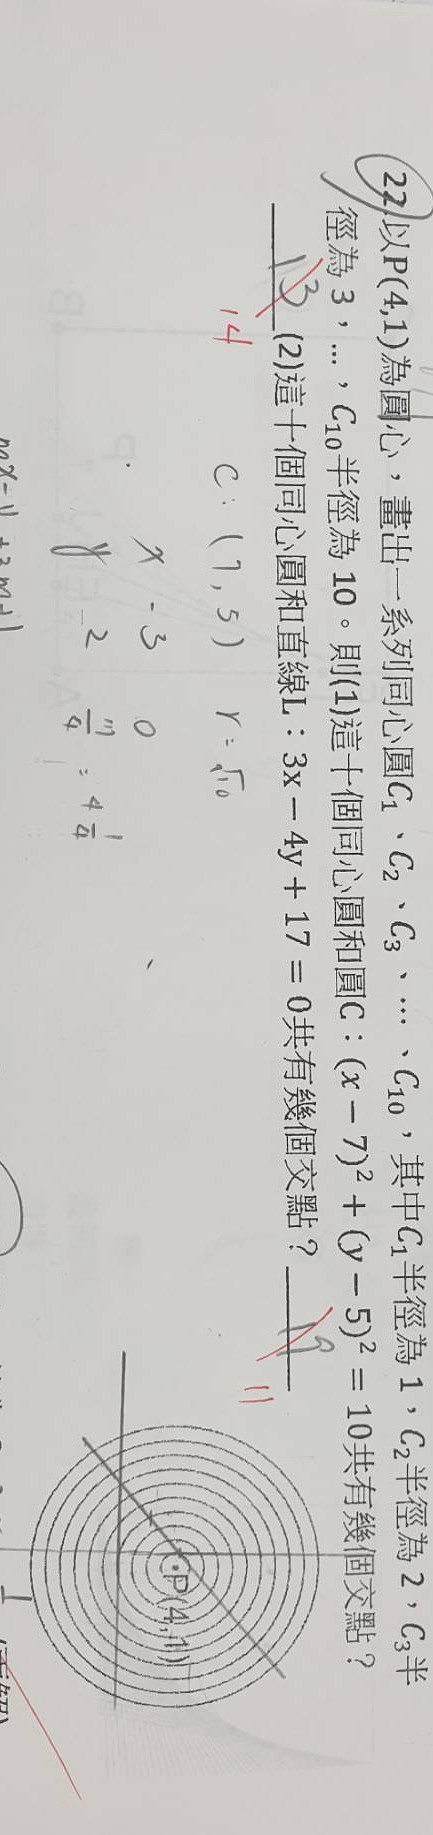 22.以P(4,1)為圓心，畫出一系列同心圓C₁、C₂、C₃、…、C₁₀，其中C₁半徑為1，C₂半徑為2，C₃半
徑為3，…，C₁₀半徑為10。則(1)這十個同心圓和圓C：(x－7)²＋(y－5)²＝10共有幾個交點？
13 (2)這十個同心圓和直線L：3x－4y＋17＝0共有幾個交點？ 19
14 11
C：(7,5) r=√10
x -3 0
y 2 17/4 = 4 1/4
P(4,1)